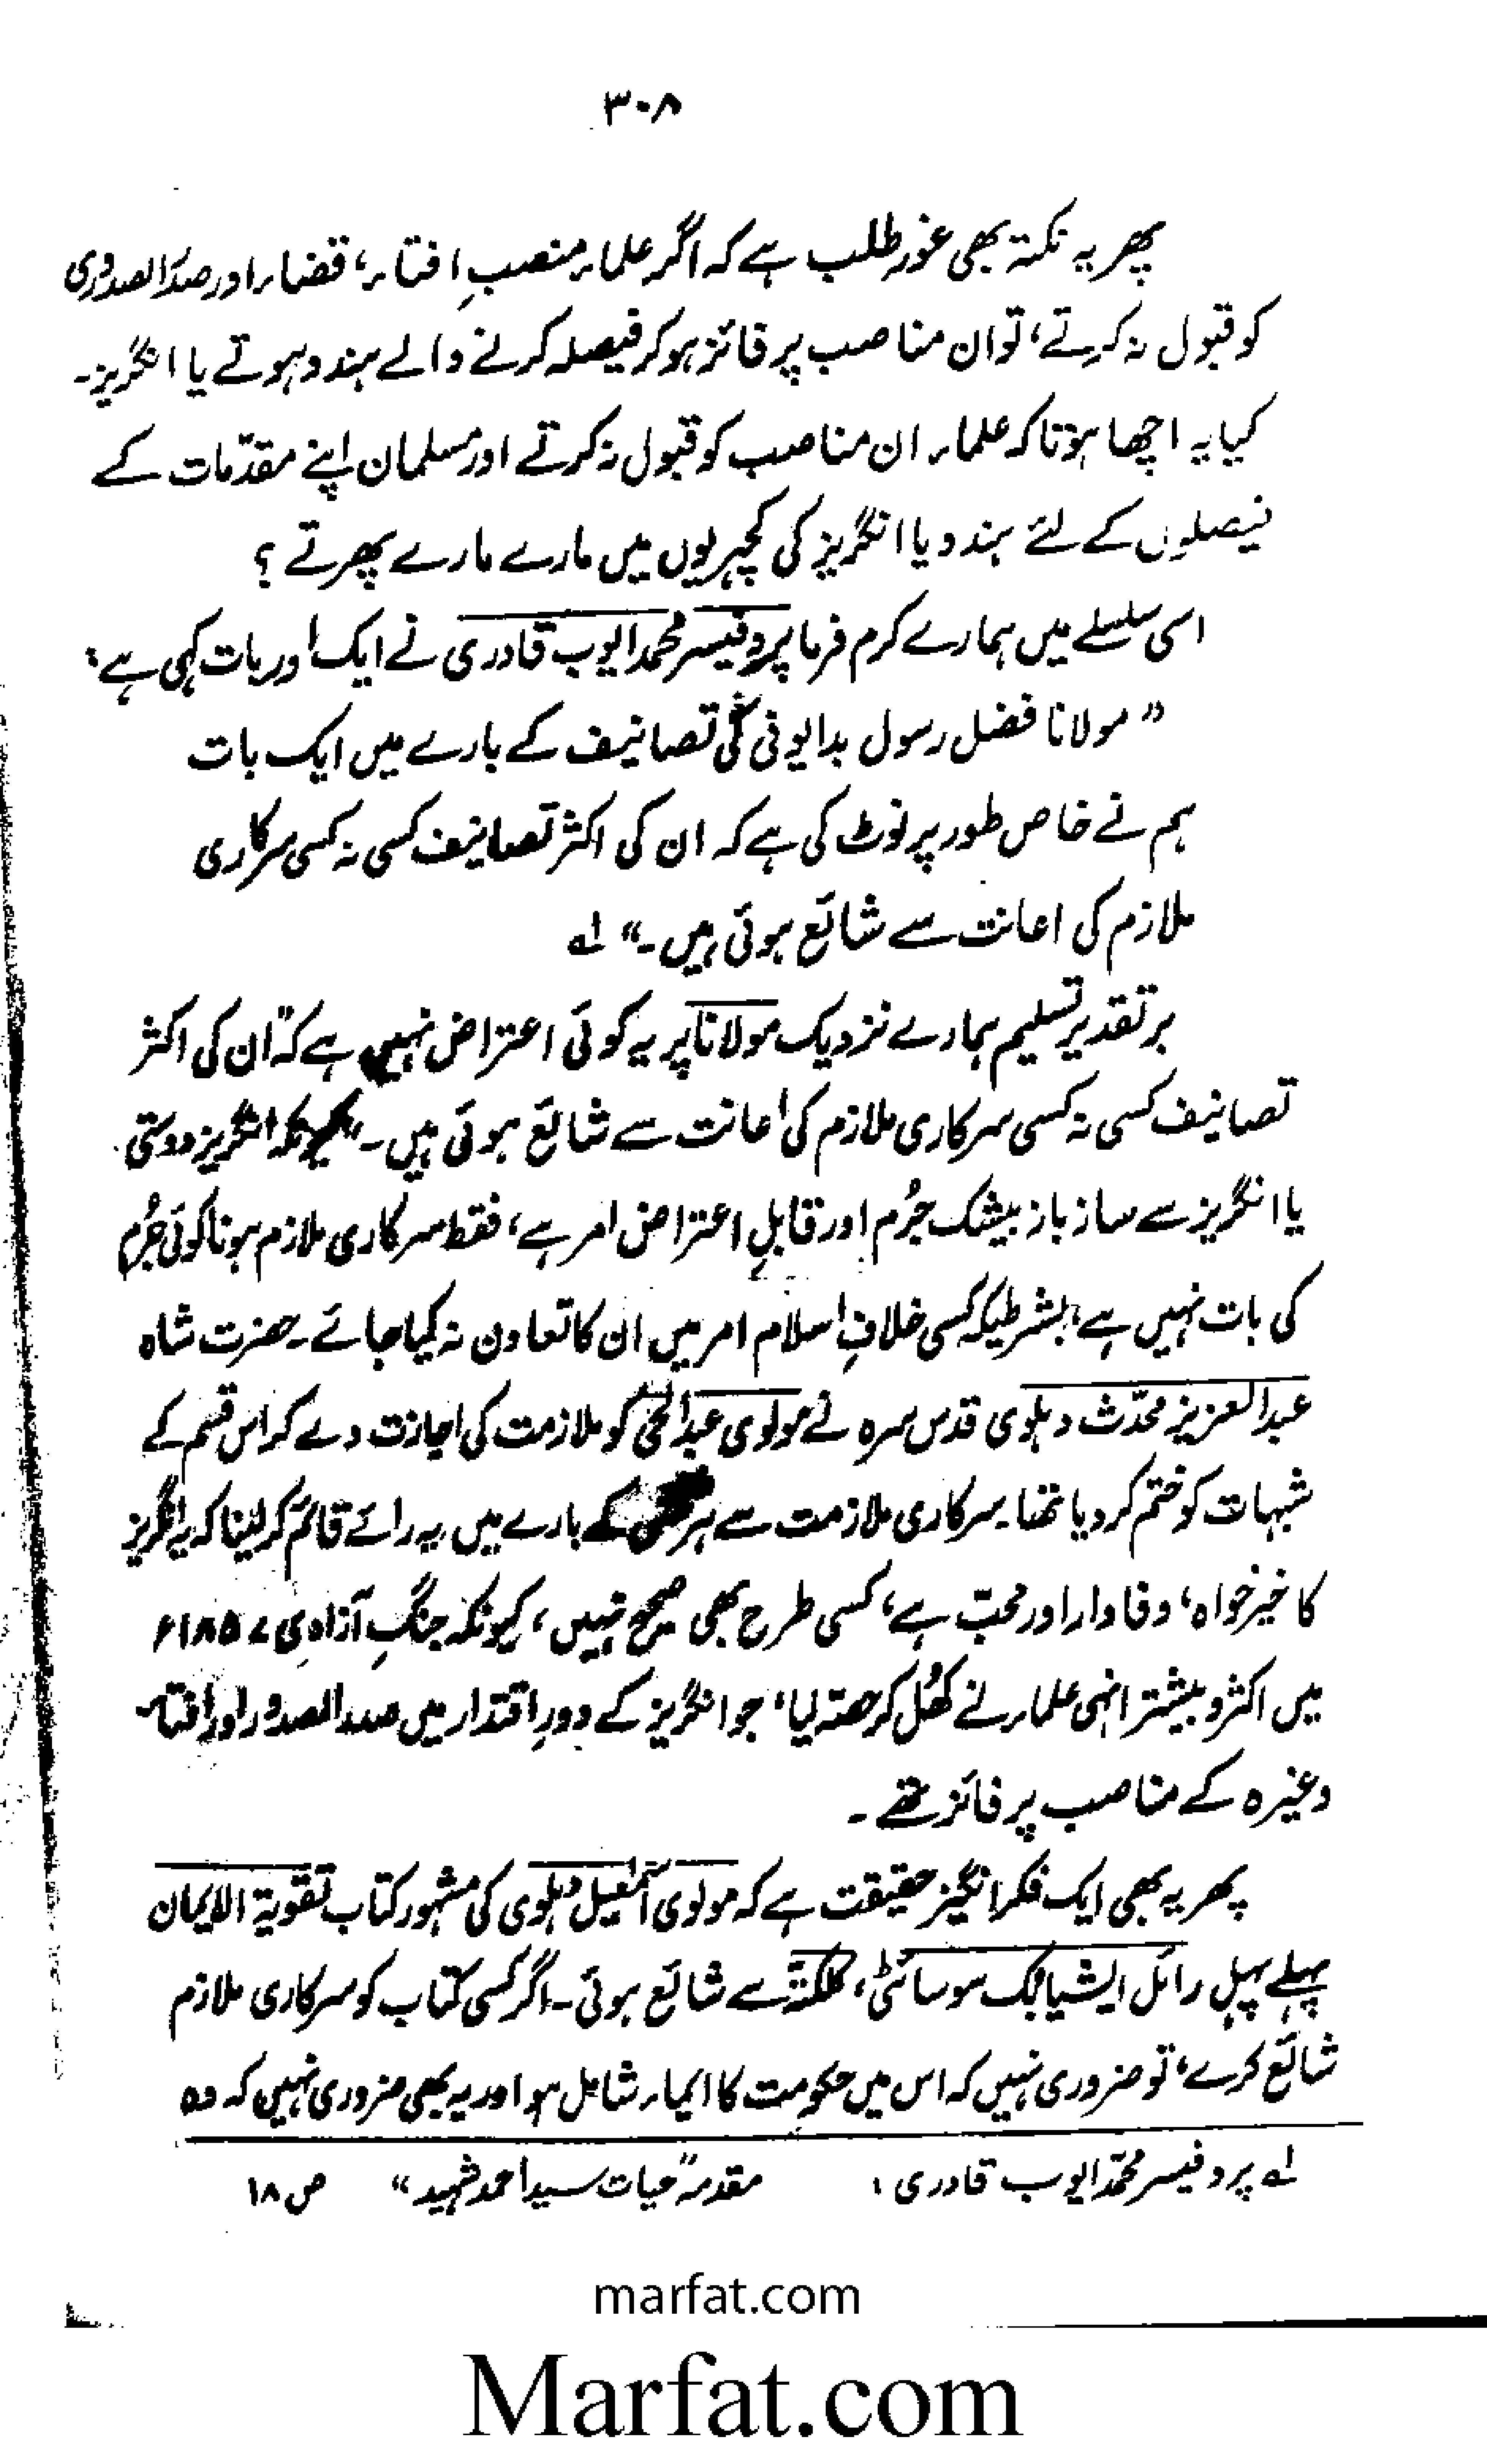 ۳۰۸
پھر یہ نکتہ بھی غور طلب ہے کہ اگر علماء منصبِ افتاء، قضاء اور صدر الصدوری
کو قبول نہ کرتے، تو ان مناصب پر فائز ہو کر فیصلہ کرنے والے ہندو ہوتے یا انگریز۔
کیا یہ اچھا ہوتا کہ علماء ان مناصب کو قبول نہ کرتے اور مسلمان اپنے مقدّمات کے
فیصلوں کے لئے ہندو یا انگریز کی کچہریوں میں مارے مارے پھرتے؟
اسی سلسلے میں ہمارے کرم فرما پروفیسر محمد ایوب قادری نے ایک اور بات کہی ہے،
”مولانا فضل رسول بدایونی کی تصانیف کے بارے میں ایک بات
ہم نے خاص طور پر نوٹ کی ہے کہ ان کی اکثر تصانیف کسی نہ کسی سرکاری
ملازم کی اعانت سے شائع ہوئی ہیں۔“ لہ
بر تقدیر تسلیم ہمارے نزدیک مولانا پر یہ کوئی اعتراض نہیں ہے کہ ”ان کی اکثر
تصانیف کسی نہ کسی سرکاری ملازم کی اعانت سے شائع ہوئی ہیں۔“ کیونکہ انگریز دوستی
یا انگریز سے ساز باز بیشک جُرم اور قابلِ اعتراض امر ہے، فقط سرکاری ملازم ہونا کوئی جُرم
کی بات نہیں ہے، بشرطیکہ کسی خلافِ اسلام امر میں ان کا تعاون نہ کیا جائے۔ حضرت شاہ
عبدالعزیز محدّث دہلوی قدس سرہ نے مولوی عبدالحیّ کو ملازمت کی اجازت دے کر اس قسم کے
شبہات کو ختم کر دیا تھا۔ سرکاری ملازمت سے ہر کے بارے میں یہ رائے قائم کر لینا کہ یہ انگریز
کا خیر خواہ، وفادار اور محبّ ہے، کسی طرح بھی صحیح نہیں، کیونکہ جنگِ آزادی ۱۸۵۷ء
میں اکثر و بیشتر انہی علماء نے کھُل کر حصّہ لیا، جو انگریز کے دورِ اقتدار میں صدر الصدور اور افتاء
وغیرہ کے مناصب پر فائز تھے۔
پھر یہ بھی ایک فکر انگیز حقیقت ہے کہ مولوی اسمٰعیل دہلوی کی مشہور کتاب تقویۃ الایمان
پہلے پہل رائل ایشیاٹک سوسائٹی، کلکتہ سے شائع ہوئی۔ اگر کسی کتاب کو سرکاری ملازم
شائع کرے، تو ضروری نہیں کہ اس میں حکومت کا ایماء شامل ہو اور یہ بھی ضروری نہیں کہ وہ
لہ پروفیسر محمّد ایوب قادری، مقدمہ ”حیات سید احمد شہید“ ص ۱۸
marfat.com
Marfat.com